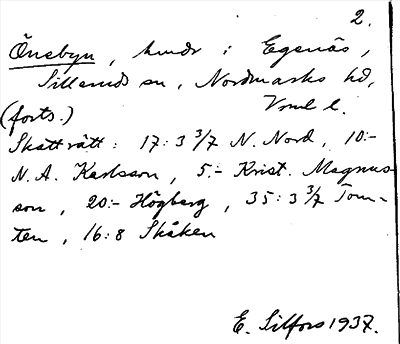 2.
Önsbyn, hmdr i Egenäs,
Sillerud sn, Nordmarks hd,
(forts.) Vrml l.
Skatträtt: 17:3 3/7 N. Nord, 10:-
N. A. Karlsson, 5:- Krist. Magnus-
son, 20:- Högberg, 35:3 3/7 Tom-
ten, 16:8 Skåken
E. Silfors 1937.